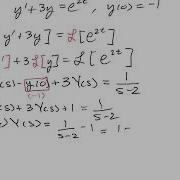 y'+3y=e^{2t}, y(0)=-1
y'+3y]=ℒ[e^{2t}]
']+3ℒ[y]=ℒ[e^{2t}]
(s)-y(0)+3Y(s)=1/(s-2)
(-1)
s)+3Y(s)+1=1/(s-2)
)Y(s)=1/(s-2)-1=1-